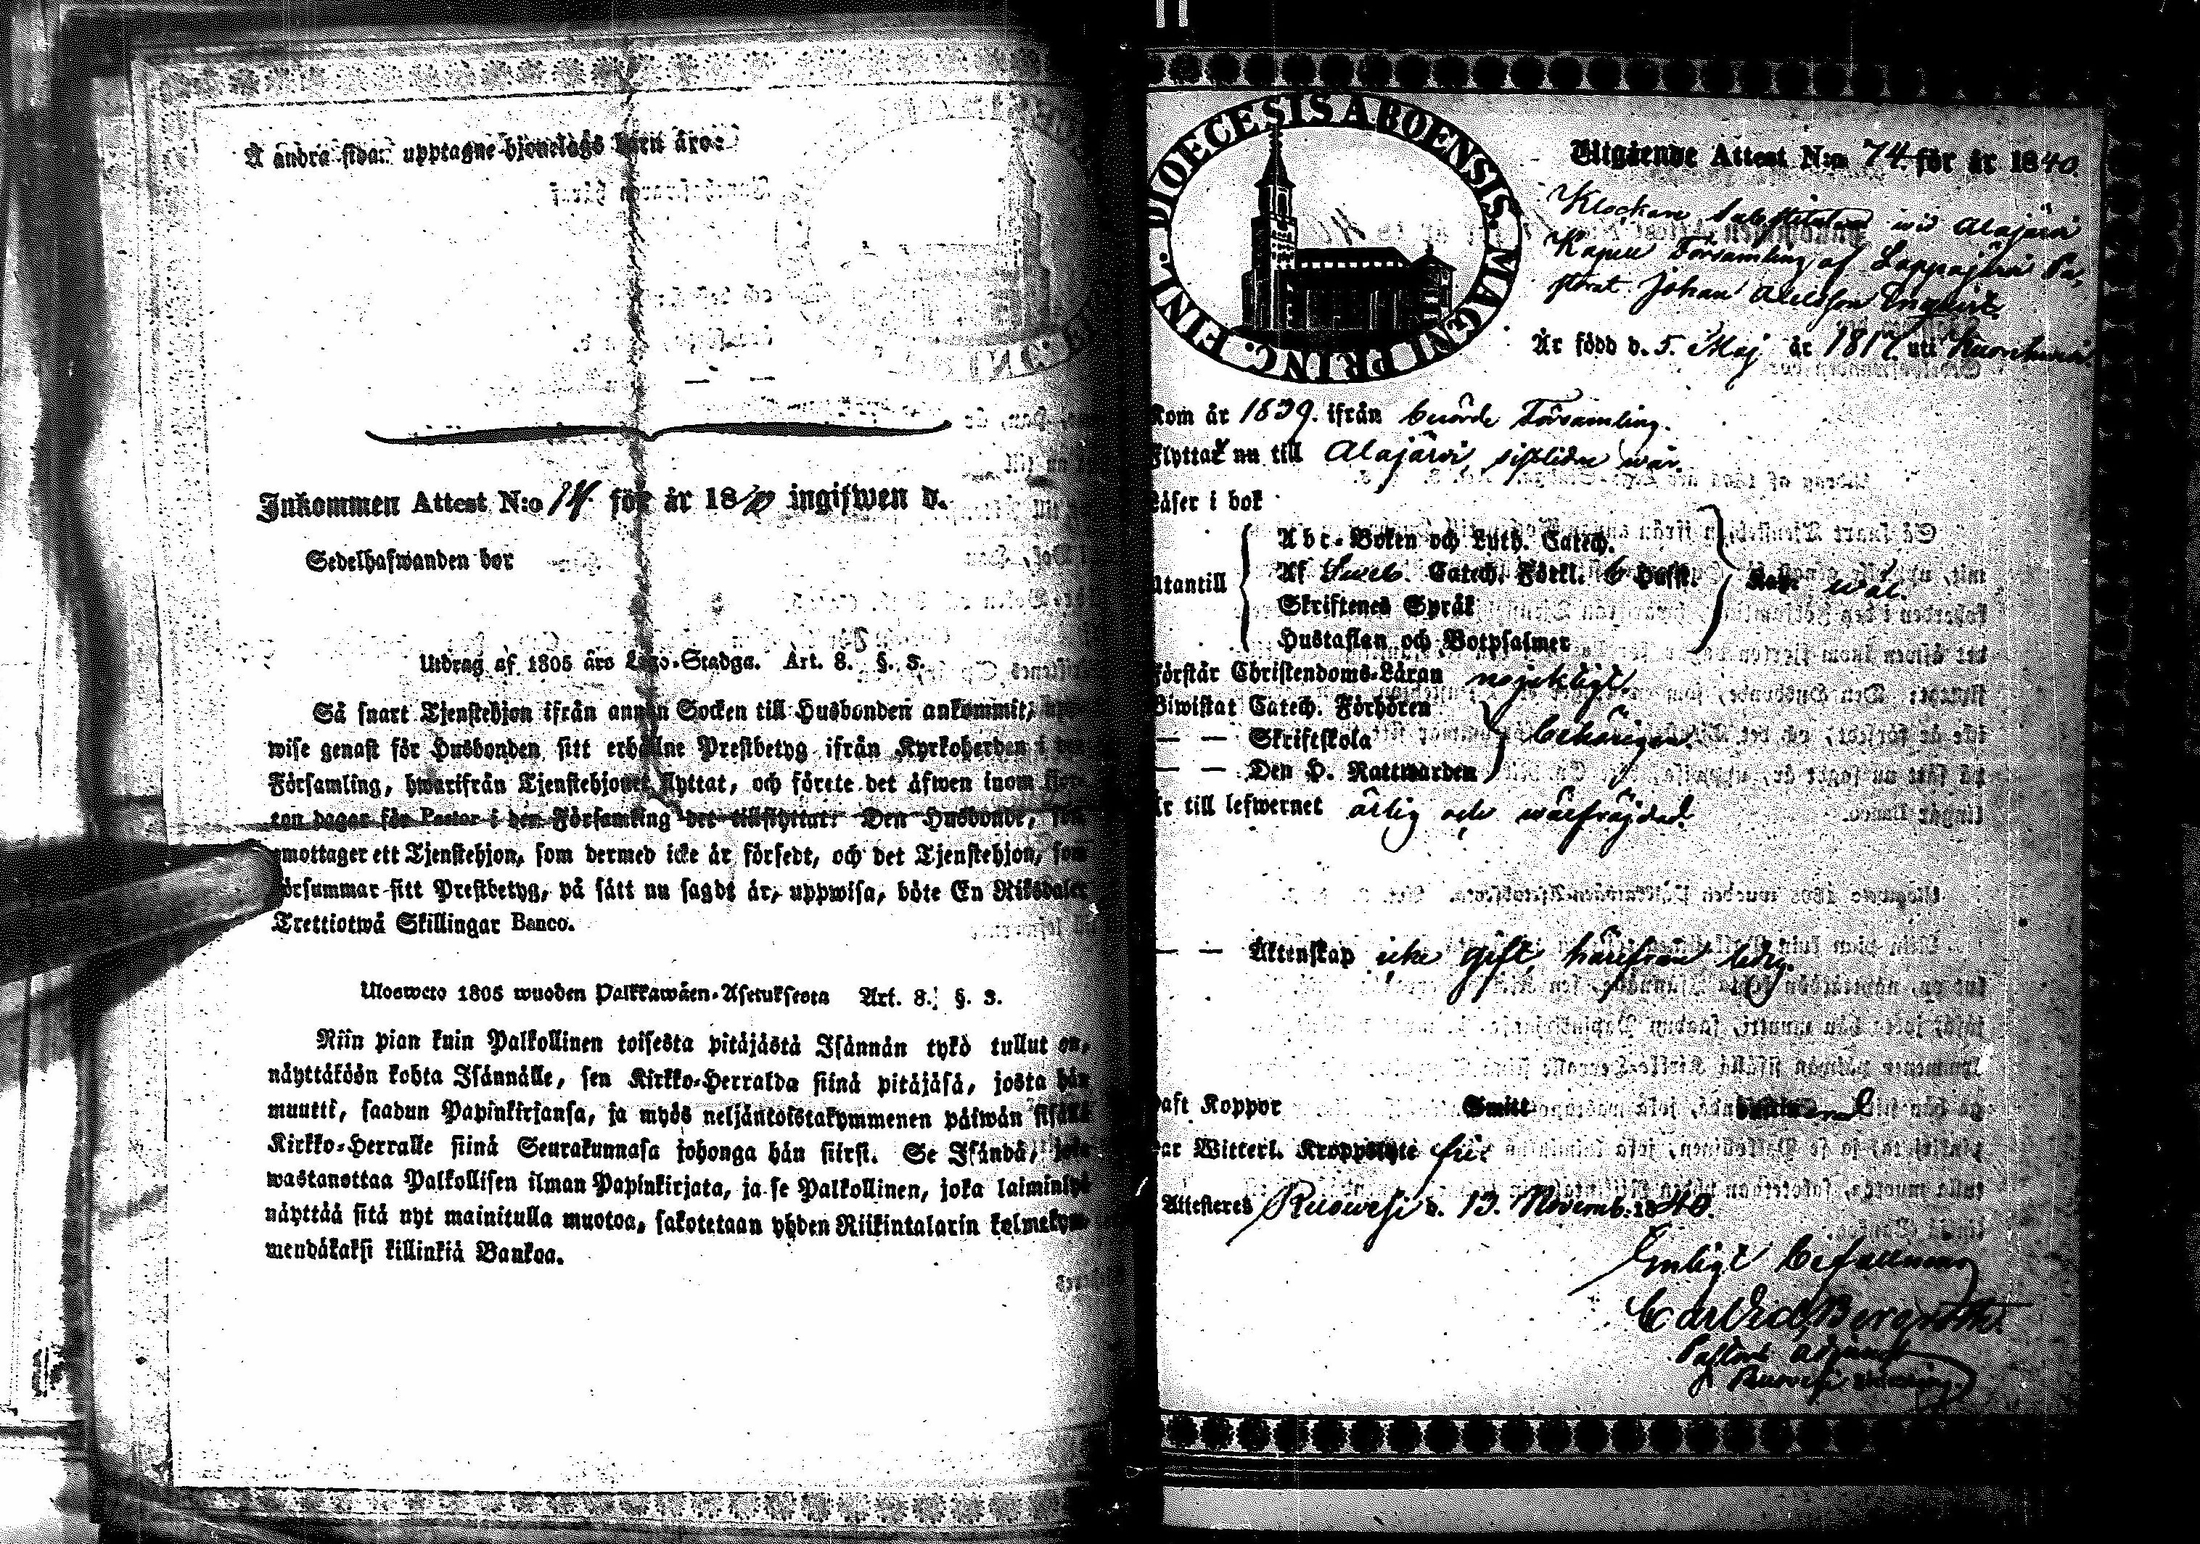 Å andra sidan upptagne hjonelags barn äro:
Inkommen Attest N:o 14 för år 1840 ingifwen d.
Sedelhafwanden bor
Utdrag af 1805 års Lego-Stadga. Art. 8. §. 3.
Så snart Tjenstehjon ifrån annan Socken till Husbonden ankommit,
wise genast för Husbonden sitt erhållne Prestbetyg ifrån Kyrkoherden i
Församling, hwarifrån Tjenstehjonet flyttat, och förete det äfwen inom
ton dagar för Pastor i den Församling det tillflyttat. Den Husbonde, som
emottager ett Tjenstehjon, som dermed icke är försedt, och det Tjenstehjon, som
försummar sitt Prestbetyg, på sätt nu sagdt är, uppwisa, böte En Riksdaler
Trettiotwå Skillingar Banco.
Ulosweto 1805 wuoden Palkkawäen-Asetuksesta Art. 8. §. 3.
Niin pian kuin Palkollinen toisesta pitäjästä Isännän tykö tullut on,
näyttäköön kohta Isännälle, sen Kirkko-Herralda siinä pitäjäsä, josta hän
muutti, saadun Papinkirjansa, ja myös neljäntoistakymmenen päiwän sisällä
Kirkko-Herralle siinä Seurakunnasa johonga hän siirsi. Se Isändä, joka
wastanottaa Palkollisen ilman Papinkirjata, ja se Palkollinen, joka laiminlyö
näyttää sitä nyt mainitulla muotoa, sakotetaan yhden Riikintalarin kolmekym-
mendäkaksi killinkiä Bankoa.
DIOECESIS ABOENSIS. MAGNI PRINC. FINL.
Utgående Attest N:o 74 för år 1840.
Klockare Substituten wid Alajärvi
Kapell Församling af Lappajärvi Pa-
storat Johan Engqvist
Är född d. 5. Maj år 1817 uti
Kom år 1839. ifrån berörde Församling.
Flyttar nu till Alajärvi, sistlidne
Läser i bok
Abc-Boken och Luth. Catech.
Utantill Af Sweb. Catech. Förkl. 6 Hufst. wäl.
Skriftenes Språk
Hustaflan och Botpsalmer
Förstår Christendoms-Läran nöjaktigt
Biwistat Catech. Förhören
— — Skriftskola behörigen.
— — Den H. Nattwarden
Är till lefwernet ärlig och wälfräjdad.
— — Äktenskap icke gift, härifrån ledig.
Haft Koppor
Har Witterl. Kroppslyte fri
Attesteres Ruowesi d. 13. Novemb. 1840.
Enligt befallning
Carl Bergroth.
Pastors Adjunct
i Ruovesi